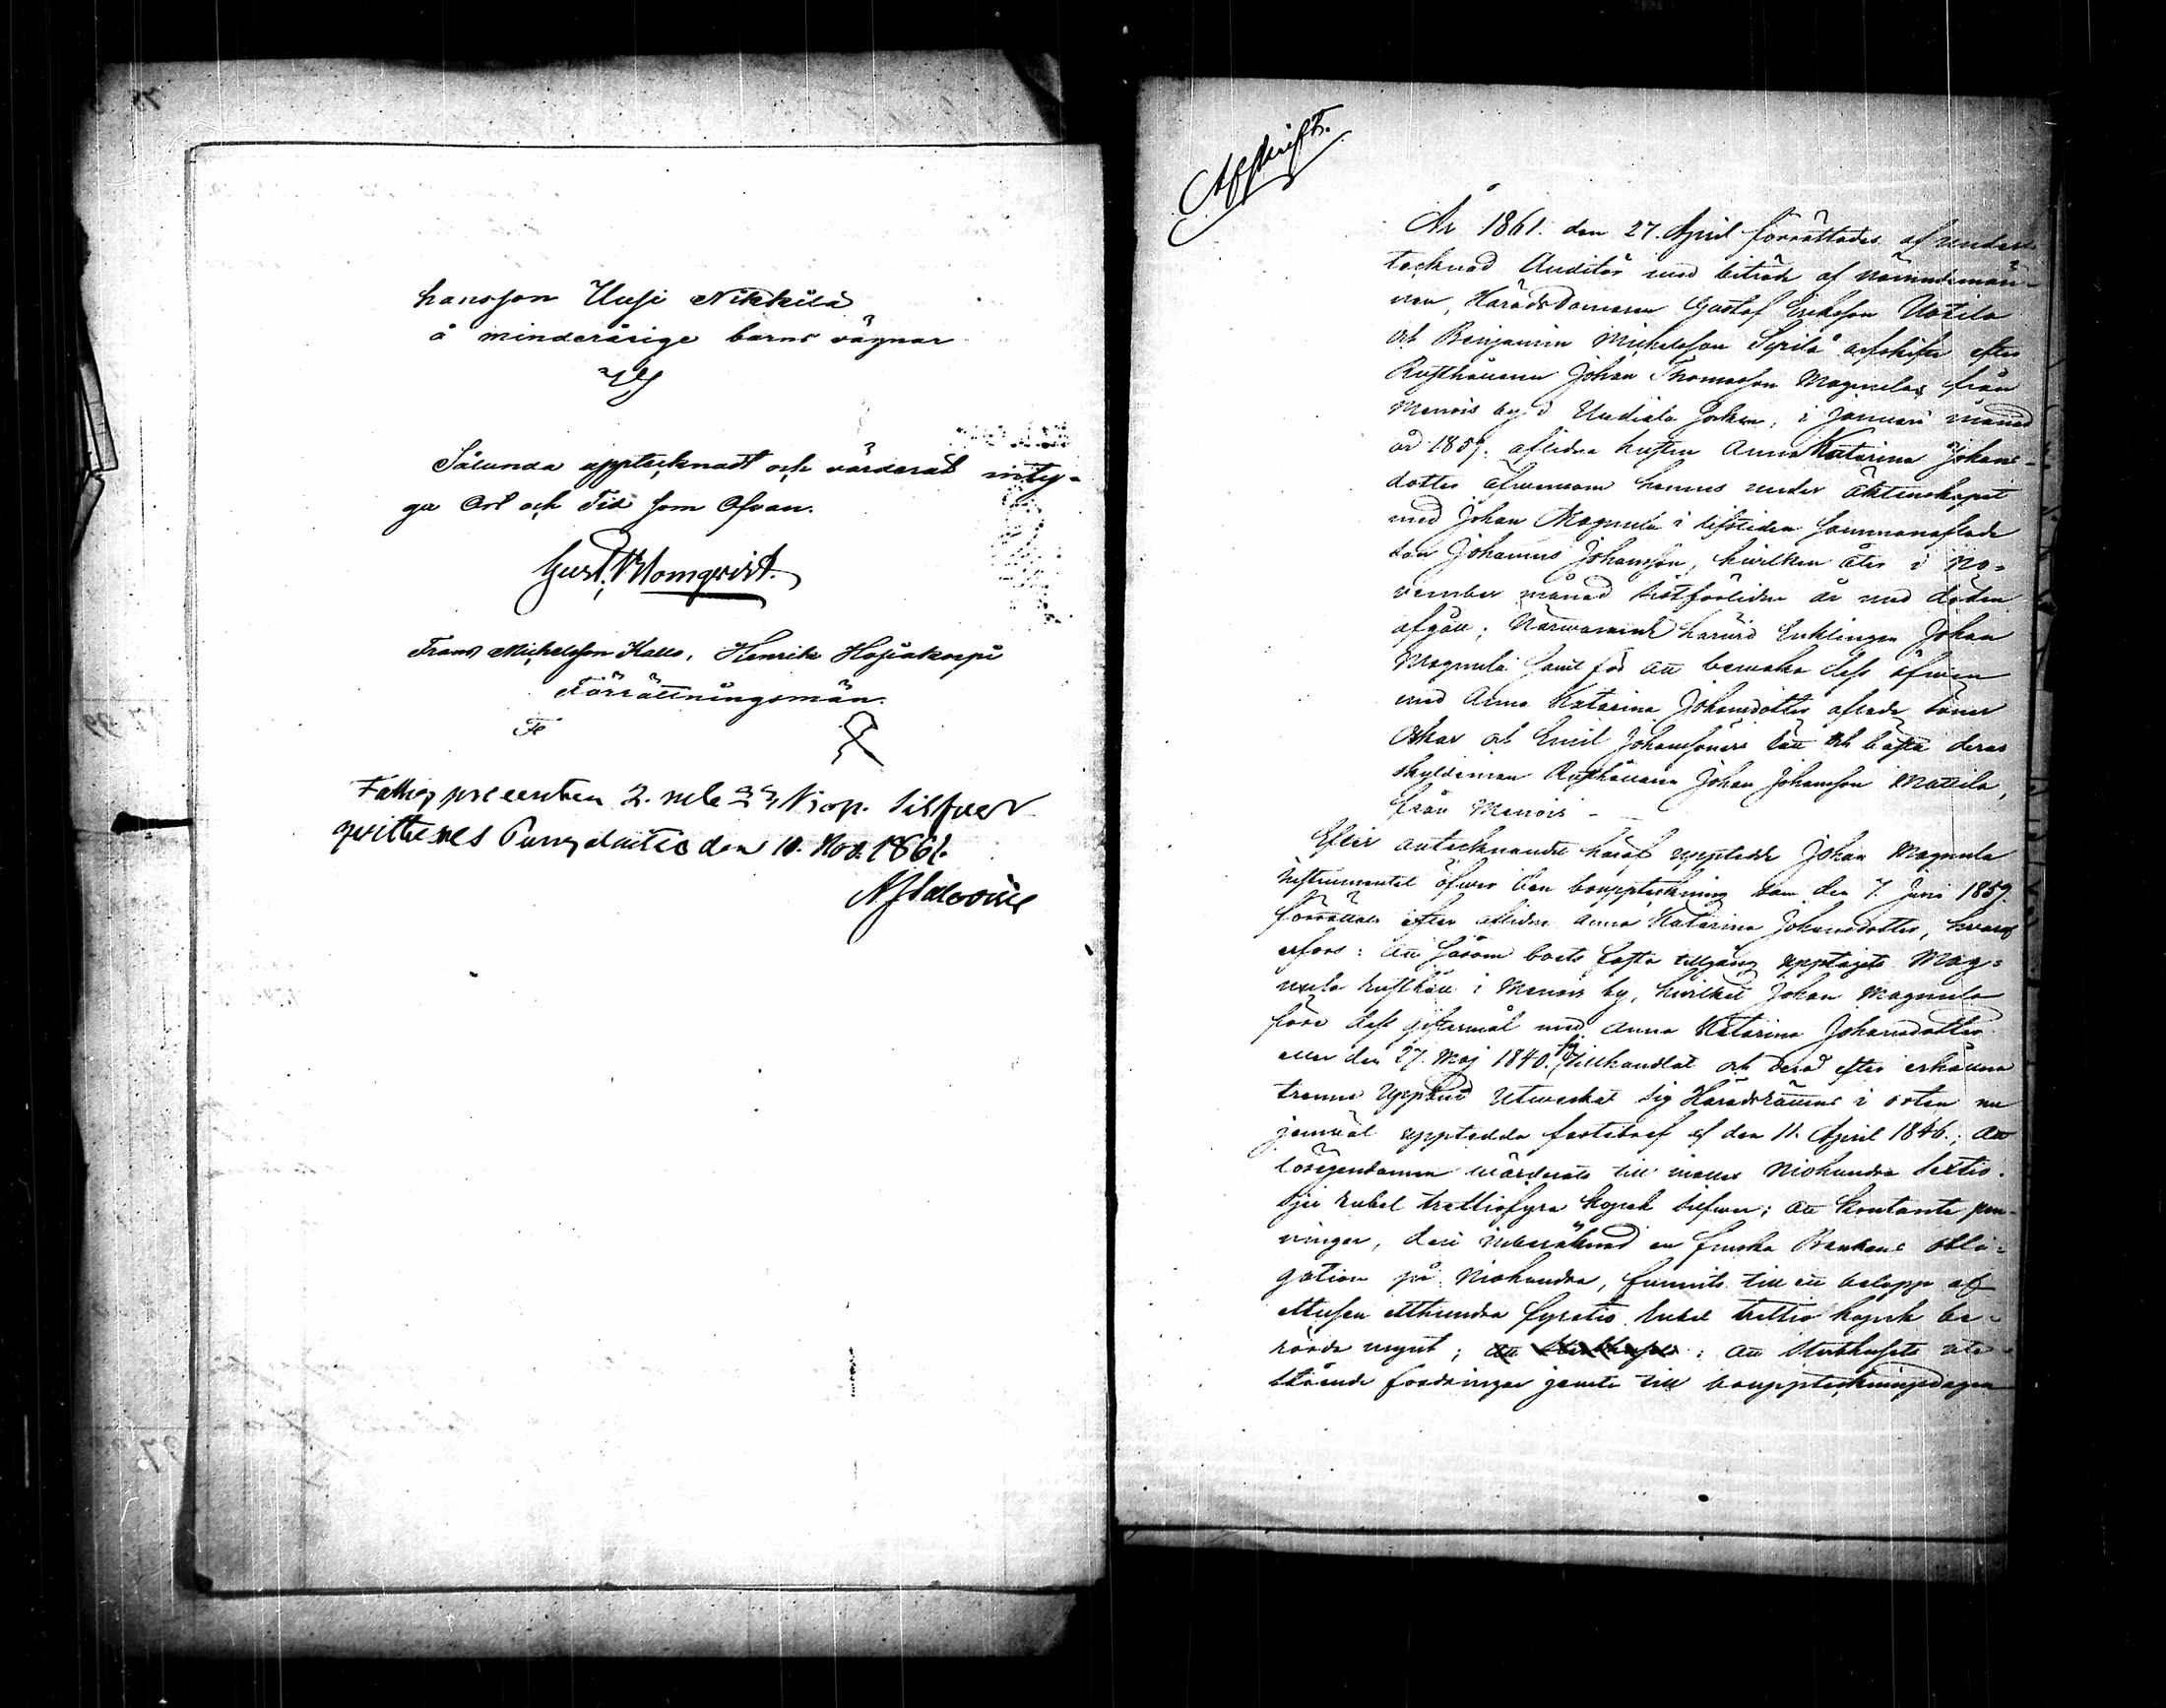 hansson Uusi Nikkilä
å minderårige barns vägnar
Sålunda upptecknadt och värderat inty-
ga Ort och Tid som Ofvan.
Gust. Blomqvist.
Frans Michelsson Kallo, Henrik Hojiakorpi
Förrättningsmän.
Fattig procenten 2. rub 33 ½ kop. Silfver
qvitteres Pungalaitio den 10. Nov. 1861.
Afskrift.
År 1861. den 27. April förrättades af under-
tecknad Auditör med biträde af nämndemän-
nen, Häradsdomaren Gustaf Eriksson Uotila
och Benjamin Michelsson Sipilä arfskifte efter
Rusthållaren Johan Thomasson Magnulas från
Menois by i Urdiala socken, i Januari månad
år 1859. aflidna hustru Anna Katarina Johans-
dotter äfvensom hennes under äktenskapet
med Johan Magnula i lifstiden sammanaflade
son Johannes Johansson, hvilken åter i No-
vember månad sistförlidne år med döden
afgått; Närvarande härvid Enklingen Johan
Magnula samt för att bevaka dess äfven
med Anna Katarina Johansdotter aflade söner
Oskar och Emil Johanssöners rätt och bästa deras
skyldeman Rusthållaren Johan Johansson Mattila,
från Menois -
Efter antecknandet häraf uppteddе Johan Magnula
instrumentet öfver den bouppteckning som den 7. Juni 1859.
förrättats efter aflidne Anna Katarina Johansdotter, hvaraf
erfors: att såsom boets fasta tillgång upptagits Mag-
nula rusthåll i Menois by, hvilket Johan Magnula
före dess giftermål med Anna Katarina Johansdotter
eller den 27. Maj 1840. sig tillhandlat och derå efter erhållna
trenne uppbud utverkat sig Häradsrättens i orten nu
jemväl uppteddа fastebref af den 11. April 1846.; att
lösegendomen värderats till inalles Niohundra Sextio-
sju rubel trettiofyra kopek silfver; att kontante pen-
ningar, deri inberäknad en finska Bankens obli-
gation på Niohundra, funnits till ett belopp af
ettusen etthundra fyratio rubel trettio kopek be-
rörde mynt; : att Sterbhusets ute-
stående fordringar jemte till bouppteckningsdagen